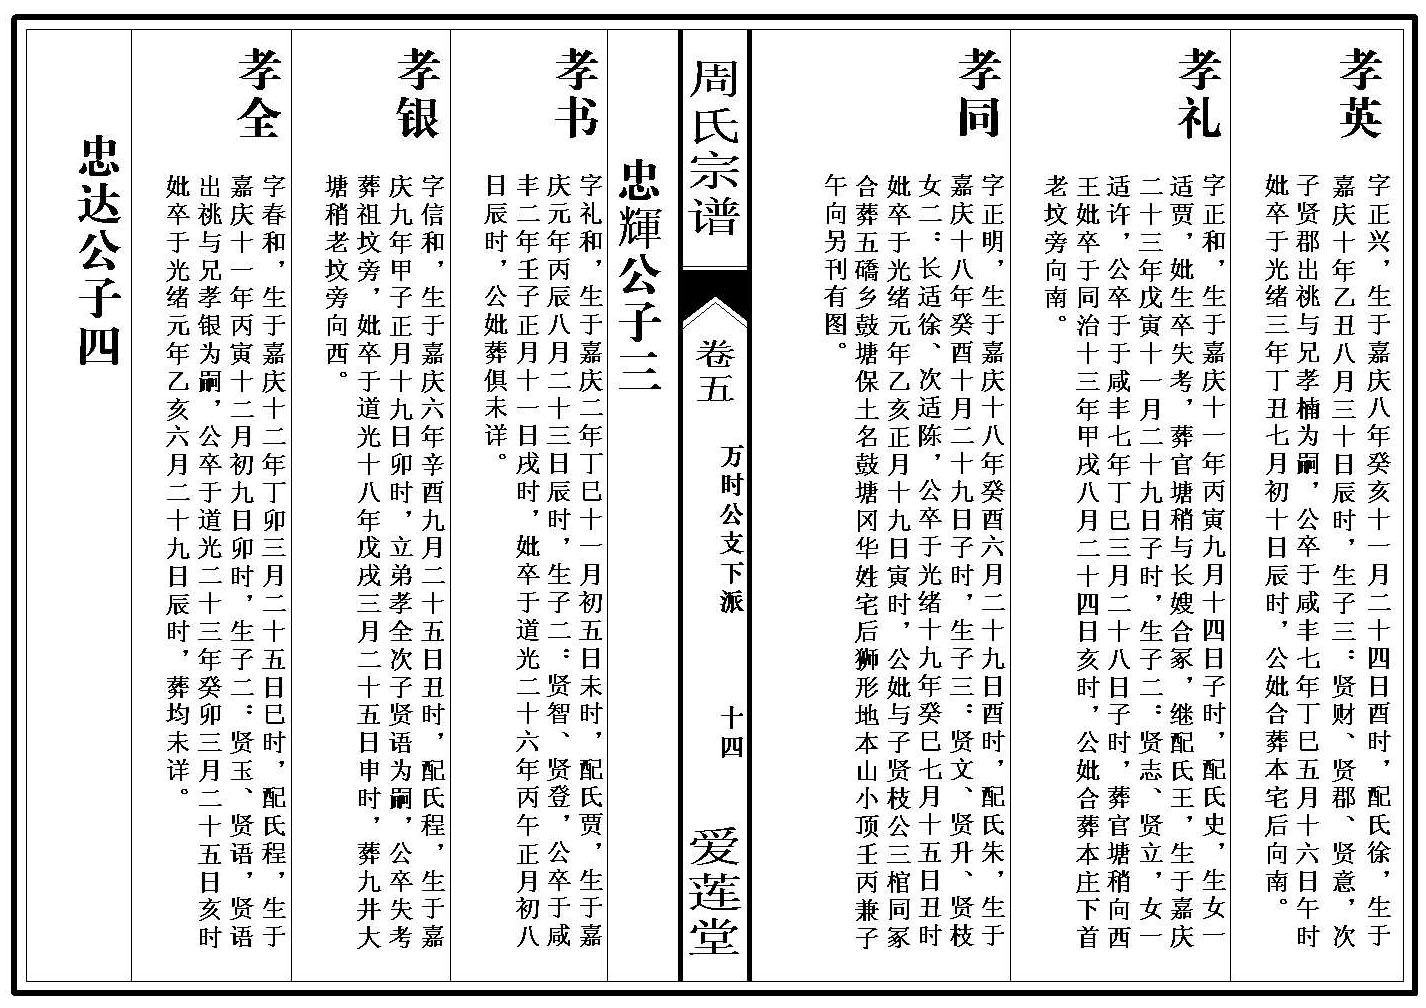 孝英
字正兴，生于嘉庆八年癸亥十一月二十四日酉时，配氏徐，生于
嘉庆十年乙丑八月三十日辰时，生子三：贤财、贤郡、贤意，次
子贤郡出祧与兄孝楠为嗣，公卒于咸丰七年丁巳五月十六日午时
妣卒于光绪三年丁丑七月初十日辰时，公妣合葬本宅后向南。
孝礼
字正和，生于嘉庆十一年丙寅九月十四日子时，配氏史，生女一
适贾，妣生卒失考，葬官塘稍与长嫂合冢，继配氏王，生于嘉庆
二十三年戊寅十一月二十九日子时，生子二：贤志、贤立，女一
适许，公卒于于咸丰七年丁巳三月二十八日子时，葬官塘稍向西
王妣卒于同治十三年甲戌八月二十四日亥时，公妣合葬本庄下首
老坟旁向南。
孝同
字正明，生于嘉庆十八年癸酉六月二十九日酉时，配氏朱，生于
嘉庆十八年癸酉十月二十九日子时，生子三：贤文、贤升、贤枝
女二：长适徐、次适陈，公卒于光绪十九年癸巳七月十五日丑时
妣卒于光绪元年乙亥正月十九日寅时，公妣与子贤枝公三棺同冢
合葬五礄乡鼓塘保土名鼓塘冈华姓宅后狮形地本山小顶壬丙兼子
午向另刊有图。
周氏宗谱
卷五
万时公支下派
十四
爱莲堂
忠輝公子三
孝书
字礼和，生于嘉庆二年丁巳十一月初五日未时，配氏贾，生于嘉
庆元年丙辰八月二十三日辰时，生子二：贤智、贤登，公卒于咸
丰二年壬子正月十一日戌时，妣卒于道光二十六年丙午正月初八
日辰时，公妣葬俱未详。
孝银
字信和，生于嘉庆六年辛酉九月二十五日丑时，配氏程，生于嘉
庆九年甲子正月十九日卯时，立弟孝全次子贤语为嗣，公卒失考
葬祖坟旁，妣卒于道光十八年戊戌三月二十五日申时，葬九井大
塘稍老坟旁向西。
孝全
字春和，生于嘉庆十二年丁卯三月二十五日巳时，配氏程，生于
嘉庆十一年丙寅十二月初九日卯时，生子二：贤玉、贤语，贤语
出祧与兄孝银为嗣，公卒于道光二十三年癸卯三月二十五日亥时
妣卒于光绪元年乙亥六月二十九日辰时，葬均未详。
忠达公子四